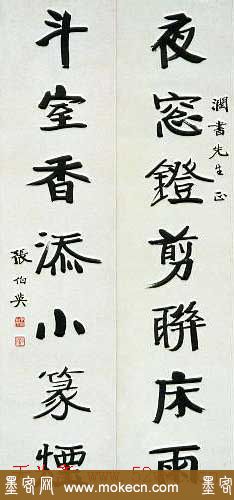 夜窓鐙剪聯床雨
潤書先生正
斗室香添小篆煙
張伯英
墨客网 墨客网
www.mokecn.com www.mokecn.com